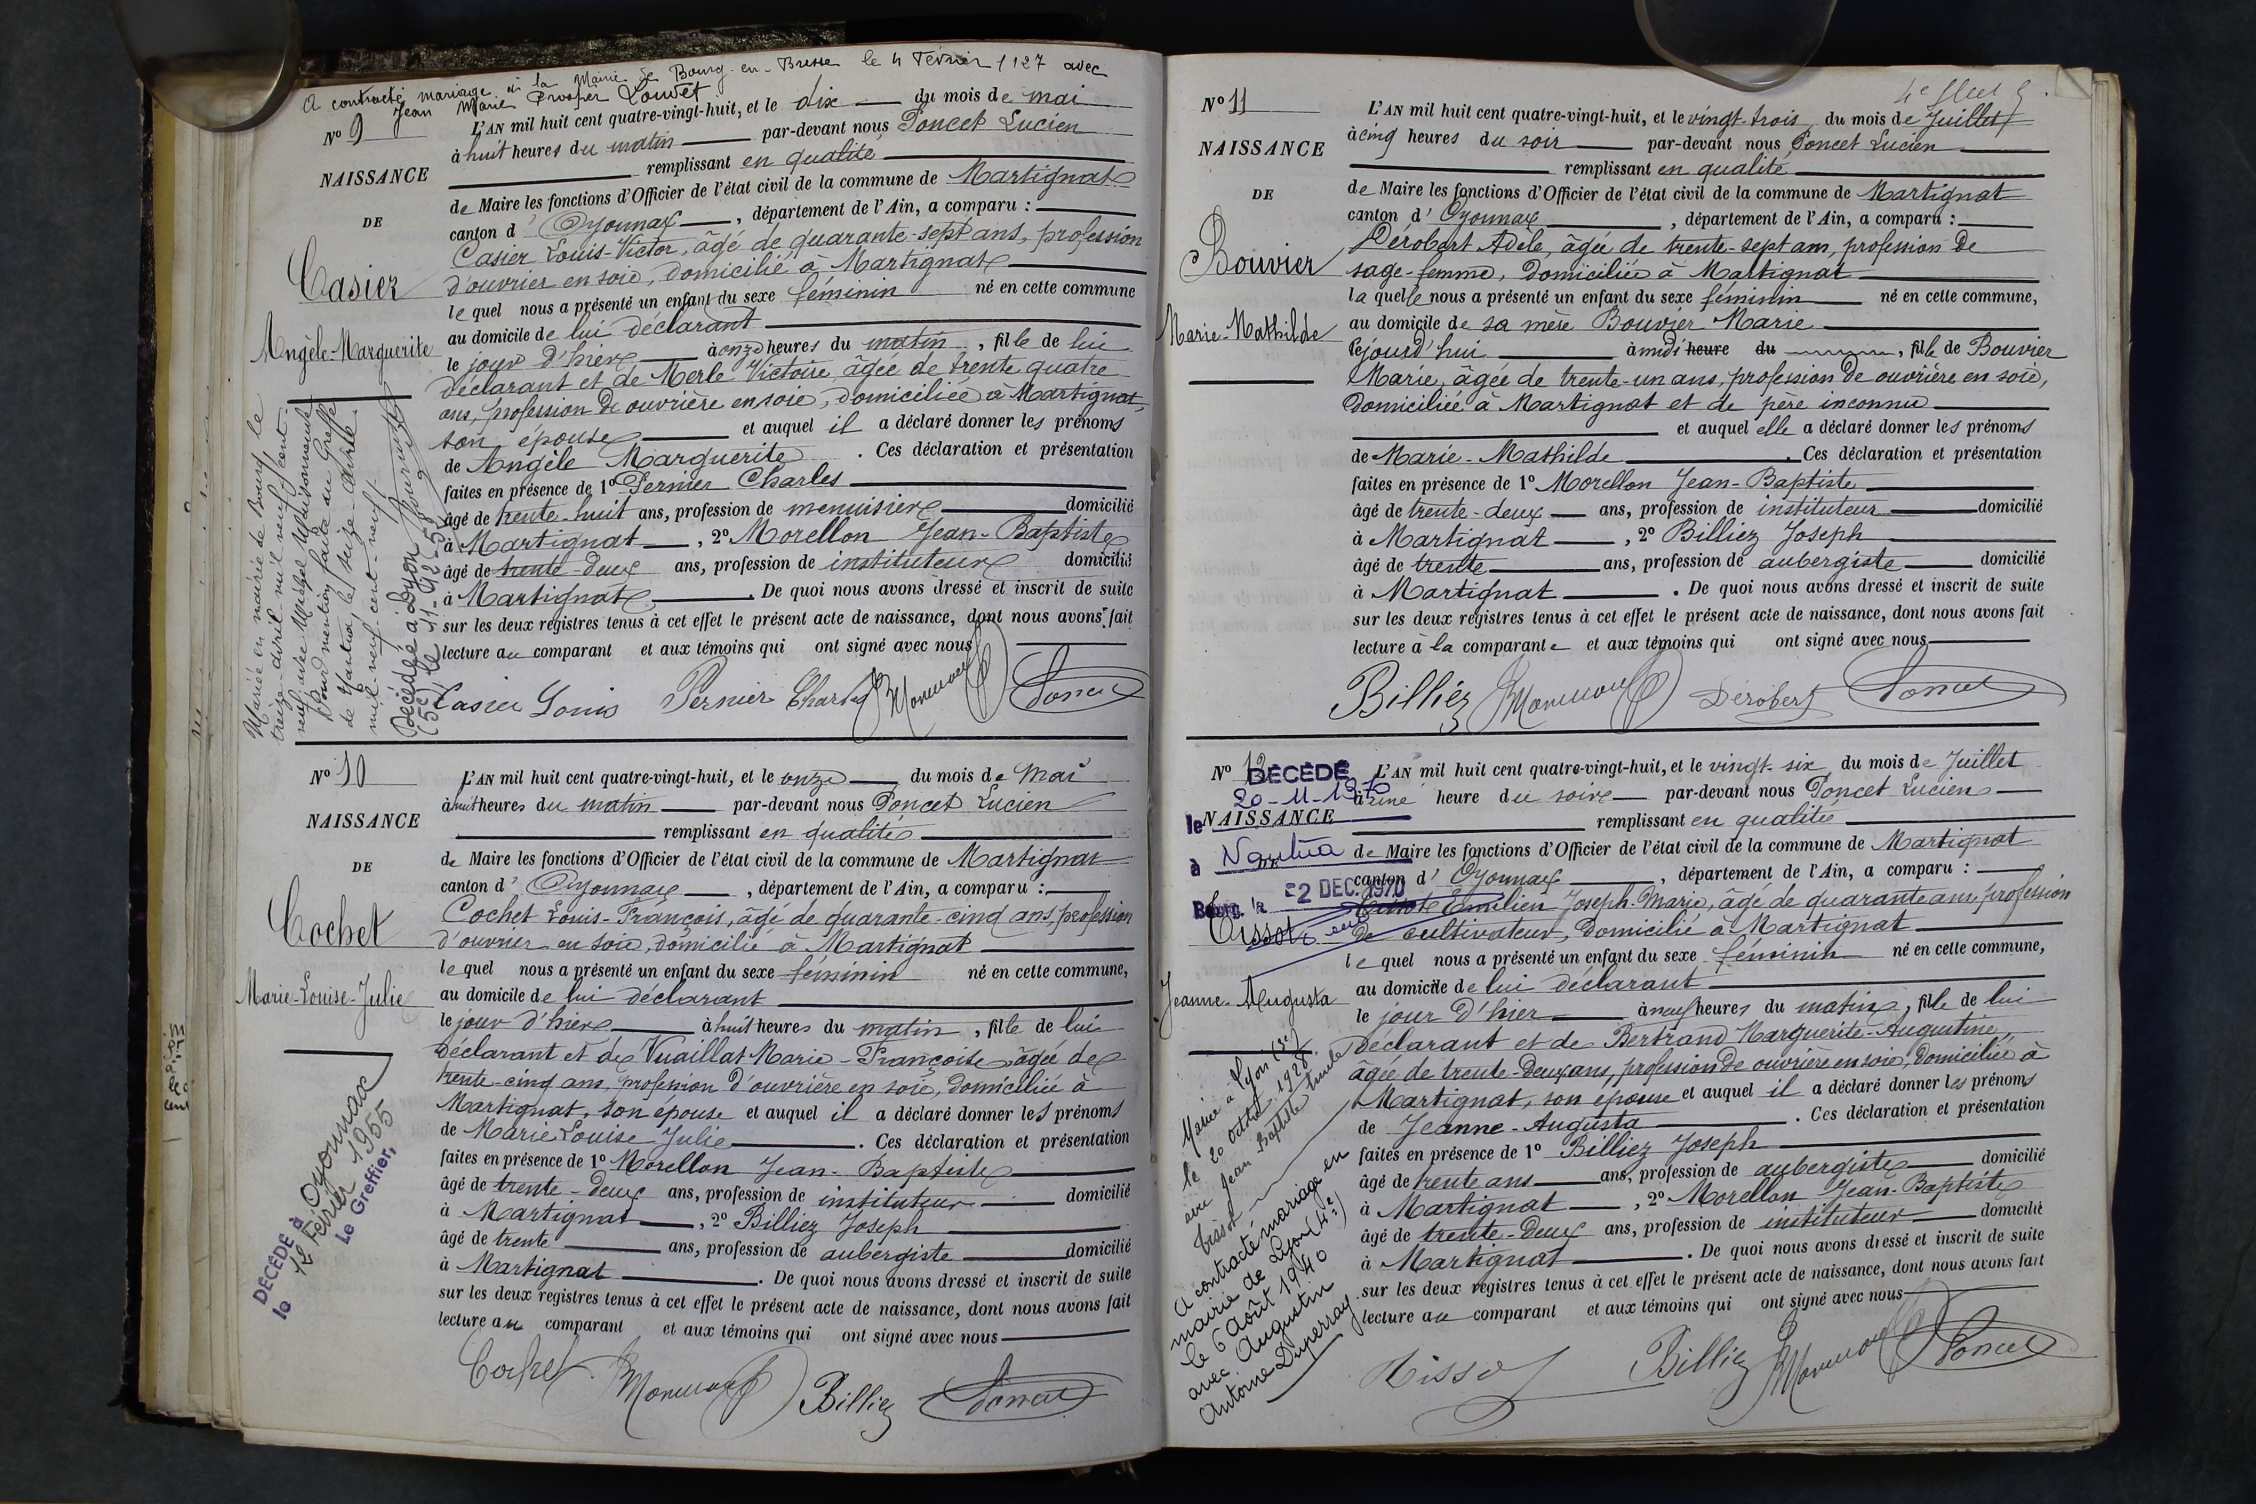 A contracté mariage à la Mairie de Bourg-en-Bresse le 4 Février 1927 avec
Jean Marie Prosper Louvet
N° 9
NAISSANCE
DE
Casier
Angèle-Marguerite
L'AN mil huit cent quatre-vingt-huit, et le dix du mois de mai
à huit heures du matin par-devant nous Poncet Lucien
remplissant en qualité
de Maire les fonctions d'Officier de l'état civil de la commune de Martignat
canton d' Oyonnax, département de l'Ain, a comparu :
Casier Louis-Victor, âgé de quarante-sept ans, profession
d'ouvrier en soie, domicilié à Martignat
lequel nous a présenté un enfant du sexe féminin né en cette commune
au domicile de lui déclarant
le jour d'hier à onze heures du matin, fille de lui
déclarant et de Merle Victoire, âgée de trente quatre
ans, profession de ouvrière en soie, domiciliée à Martignat,
son épouse et auquel il a déclaré donner les prénoms
de Angèle Marguerite. Ces déclaration et présentation
faites en présence de 1° Pernier Charles
âgé de trente-huit ans, profession de menuisier domicilié
à Martignat, 2° Morellon Jean-Baptiste
âgé de trente-deux ans, profession de instituteur domicilié
à Martignat. De quoi nous avons dressé et inscrit de suite
sur les deux registres tenus à cet effet le présent acte de naissance, dont nous avons fait
lecture au comparant et aux témoins qui ont signé avec nous
Casier Louis Pernier Charles Poncet
Mariée en mairie de Bourg le
treize avril mil neuf cent
neuf avec
Pour mention faite au Greffe
de Nantua, le seize Avril
mil-neuf-cent-neuf
Décédée à Lyon
(5e) le 11-9-
N° 10
NAISSANCE
DE
Cochet
Marie-Louise-Julie
L'AN mil huit cent quatre-vingt-huit, et le onze du mois de Mai
à huit heures du matin par-devant nous Poncet Lucien
remplissant en qualité
de Maire les fonctions d'Officier de l'état civil de la commune de Martignat
canton d' Oyonnax, département de l'Ain, a comparu :
Cochet Louis-François, âgé de quarante-cinq ans, profession
d'ouvrier en soie, domicilié à Martignat
lequel nous a présenté un enfant du sexe féminin né en cette commune,
au domicile de lui déclarant
le jour d'hier à huit heures du matin, fille de lui
déclarant et de Vuaillat Marie-Françoise âgée de
trente-cinq ans, profession d'ouvrière en soie, domiciliée à
Martignat, son épouse et auquel il a déclaré donner les prénoms
de Marie Louise Julie. Ces déclaration et présentation
faites en présence de 1° Morellon Jean-Baptiste
âgé de trente-deux ans, profession de instituteur domicilié
à Martignat, 2° Billiez Joseph
âgé de trente ans, profession de aubergiste domicilié
à Martignat. De quoi nous avons dressé et inscrit de suite
sur les deux registres tenus à cet effet le présent acte de naissance, dont nous avons fait
lecture au comparant et aux témoins qui ont signé avec nous
Cochet Billiez Poncet
DÉCÉDÉ à Oyonnax
le 12 Février 1955
Le Greffier,
N° 11
NAISSANCE
DE
Bouvier
Marie-Mathilde
L'AN mil huit cent quatre-vingt-huit, et le vingt-trois du mois de Juillet
à cinq heures du soir par-devant nous Poncet Lucien
remplissant en qualité
de Maire les fonctions d'Officier de l'état civil de la commune de Martignat
canton d' Oyonnax, département de l'Ain, a comparu :
Dérobert Adèle, âgée de trente-sept ans, profession de
sage-femme, domiciliée à Martignat
laquelle nous a présenté un enfant du sexe féminin né en cette commune,
au domicile de sa mère Bouvier Marie
le jourd'hui à midi heure du, fille de Bouvier
Marie, âgée de trente-un ans, profession de ouvrière en soie,
domiciliée à Martignat et de père inconnu
et auquel elle a déclaré donner les prénoms
de Marie-Mathilde. Ces déclaration et présentation
faites en présence de 1° Morellon Jean-Baptiste
âgé de trente-deux ans, profession de instituteur domicilié
à Martignat, 2° Billiez Joseph
âgé de trente ans, profession de aubergiste domicilié
à Martignat. De quoi nous avons dressé et inscrit de suite
sur les deux registres tenus à cet effet le présent acte de naissance, dont nous avons fait
lecture à la comparante et aux témoins qui ont signé avec nous
Billiez Dérobert Poncet
N° 12
NAISSANCE
Tissot
Jeanne-Augusta
DÉCÉDÉ
le 20-11-1970
à Nantua
Bourg, le -2 DEC. 1970
L'AN mil huit cent quatre-vingt-huit, et le vingt-six du mois de Juillet
à une heure du soir par-devant nous Poncet Lucien
remplissant en qualité
de Maire les fonctions d'Officier de l'état civil de la commune de Martignat
canton d' Oyonnax, département de l'Ain, a comparu :
Tissot Emilien Joseph-Marie, âgé de quarante ans, profession
de cultivateur, domicilié à Martignat
lequel nous a présenté un enfant du sexe féminin né en cette commune,
au domicile de lui déclarant
le jour d'hier à neuf heures du matin, fille de lui
déclarant et de Bertrand Marguerite-Augustine,
âgée de trente-deux ans, profession de ouvrière en soie, domiciliée à
Martignat, son épouse et auquel il a déclaré donner les prénoms
de Jeanne-Augusta. Ces déclaration et présentation
faites en présence de 1° Billiez Joseph
âgé de trente ans ans, profession de aubergiste domicilié
à Martignat, 2° Morellon Jean-Baptiste
âgé de trente-deux ans, profession de instituteur domicilié
à Martignat. De quoi nous avons dressé et inscrit de suite
sur les deux registres tenus à cet effet le présent acte de naissance, dont nous avons fait
lecture au comparant et aux témoins qui ont signé avec nous
Tissot Billiez Poncet
Mariée à Lyon (5e)
le 20 octobre
avec Jean Baptiste
Tissot
A contracté mariage en
mairie de Lyon (4e)
le 6 Août 1940
avec Augustin
Antoine Duperray